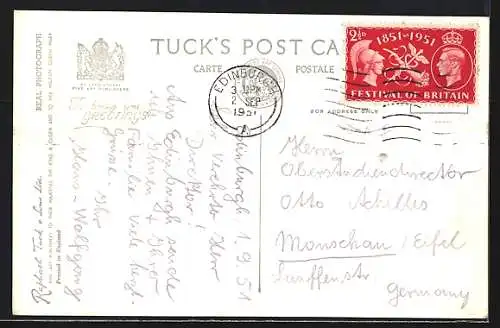 TUCK'S POST CA
CARTE POSTALE
FOR ADDRESS ONLY
REAL PHOTOGRAPH
Raphael Tuck & Sons Ltd.
Printed in England
To bring you
greetings
EDINBURGH
3 PM
2 SEP
1951
A
2½D 1851-1951
FESTIVAL OF BRITAIN
Edinburgh 1.9.51
Verehrter Herr
Direktor!
Aus Edinburgh sende
ich Ihnen + Ihrer
Familie viele herzl.
Grüsse. Ihr
Hans-Wolfgang
Herrn
Oberstudiendirector
Otto Achilles
Monschau / Eifel
Laufenstr.
Germany